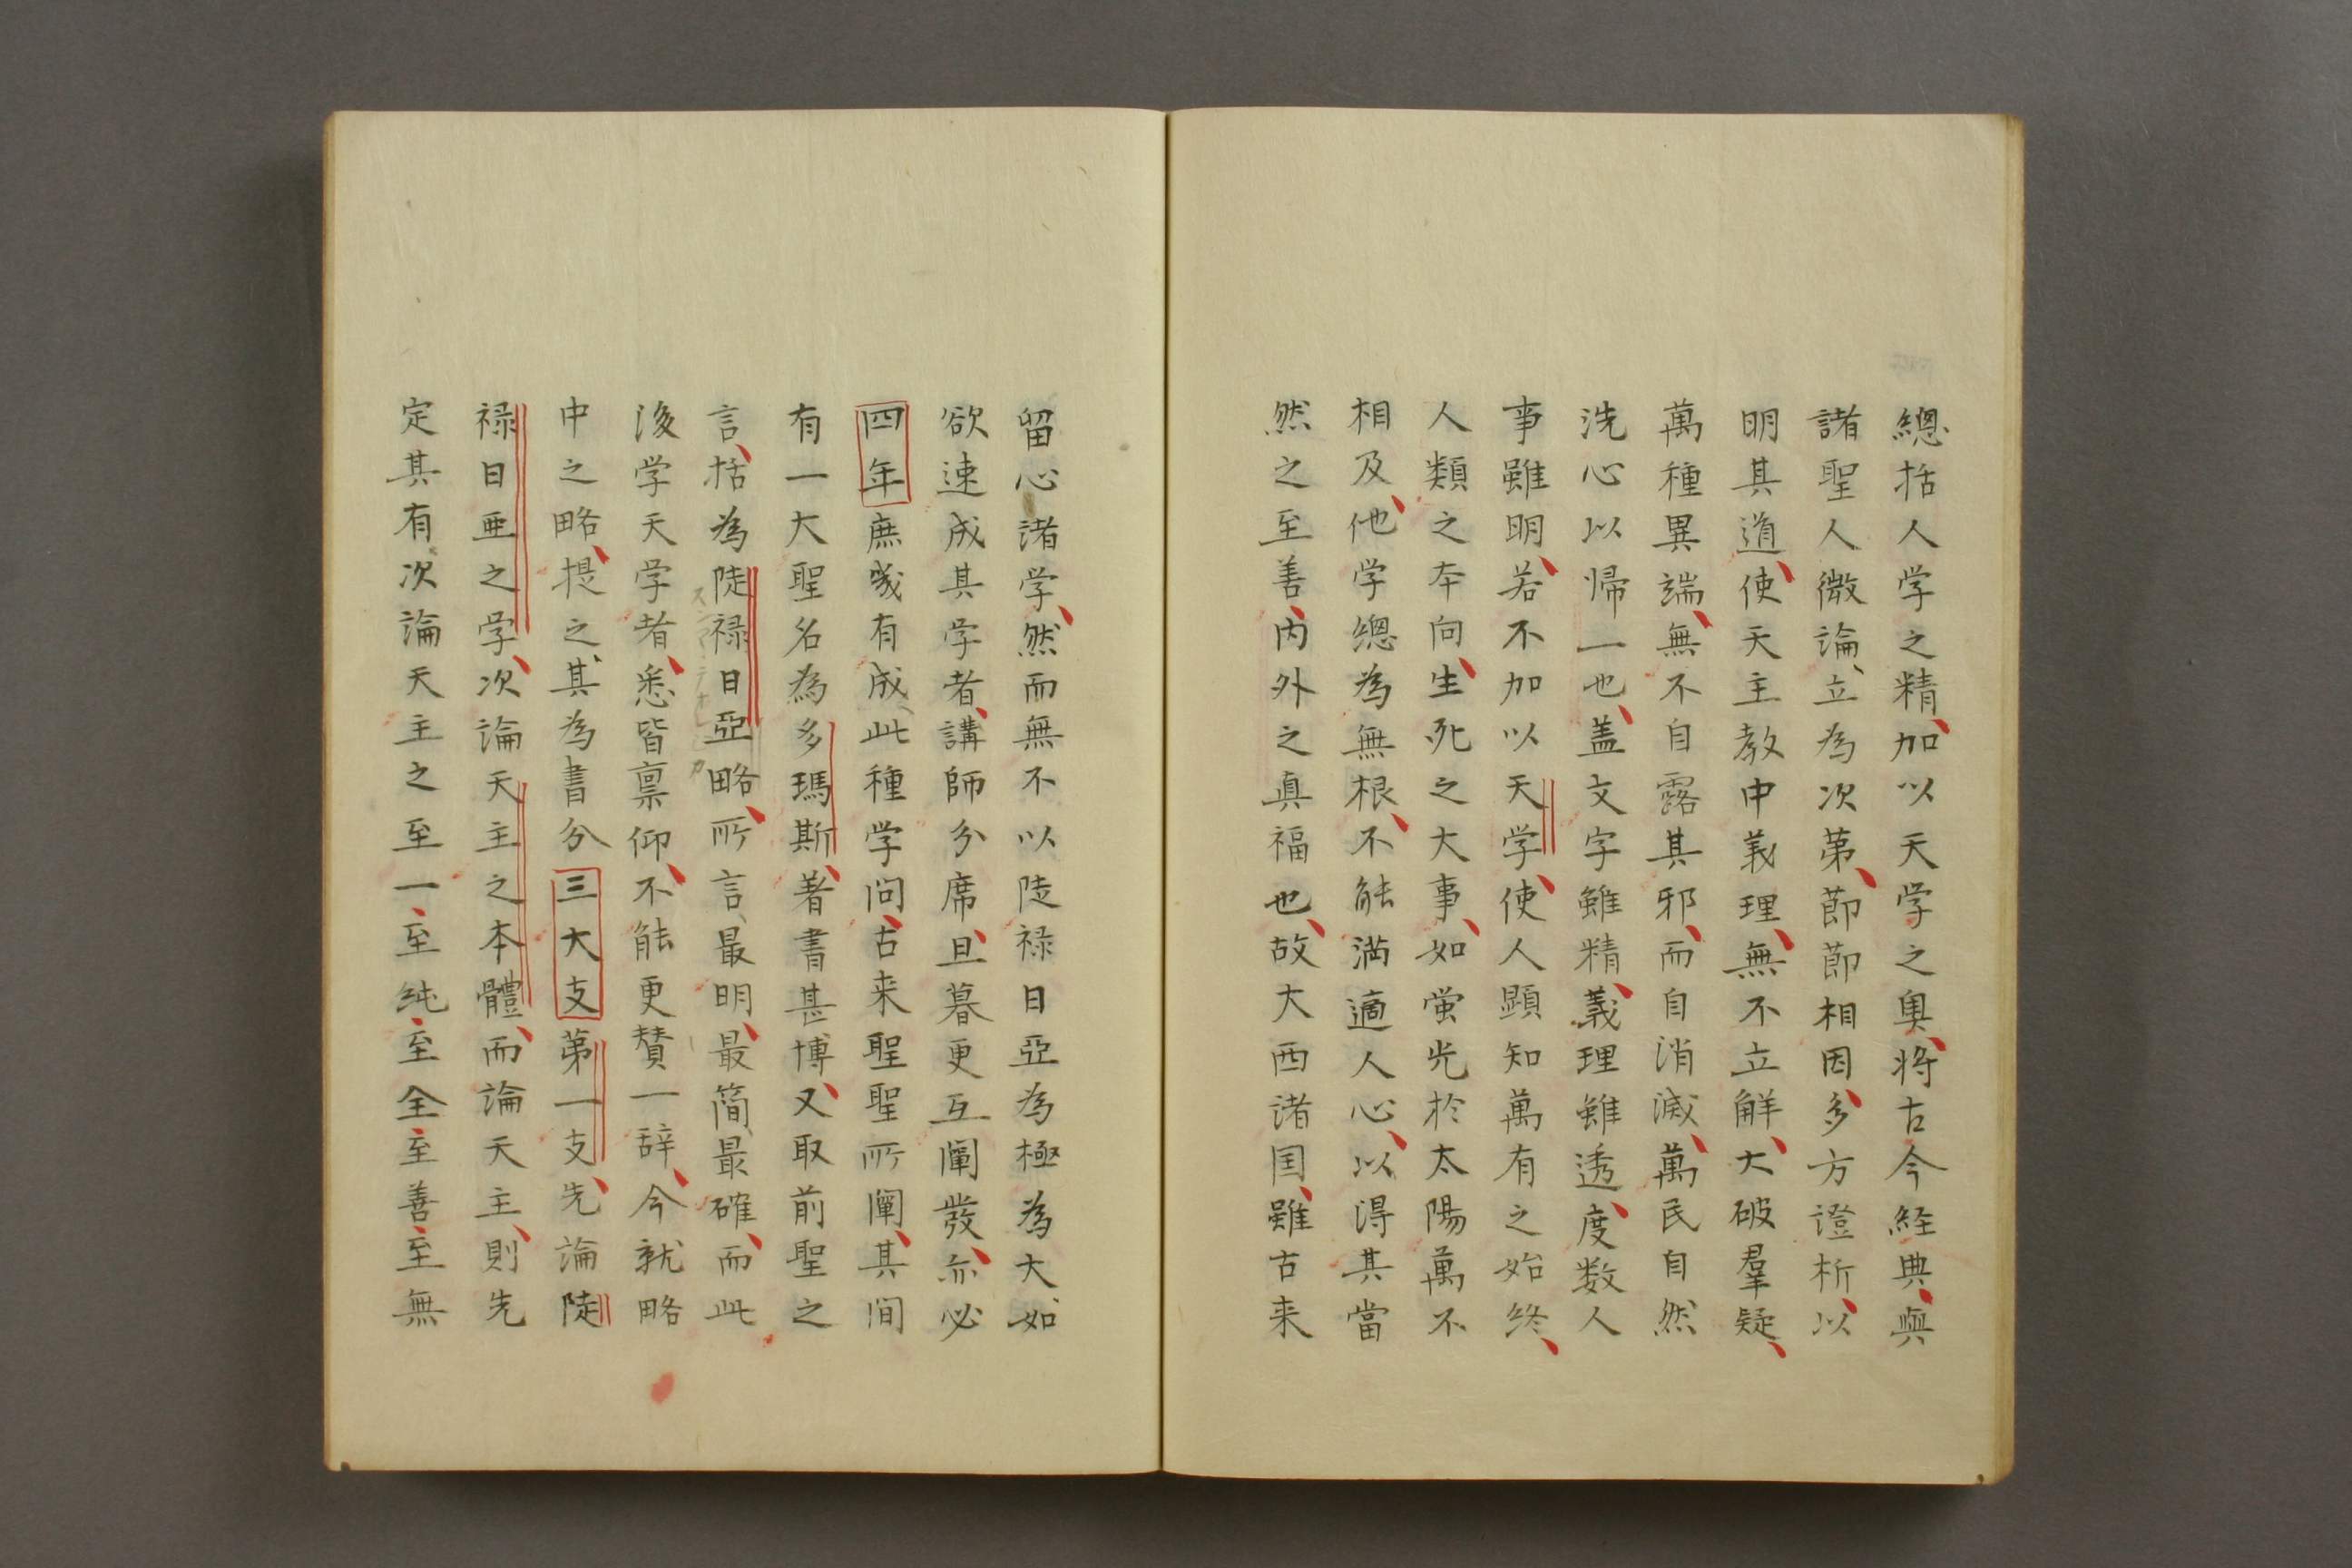 總括人学之精、加以天学之奥、将古今経典、與
諸聖人微論、立為次第、節節相因、多方證析、以
明其道、使天主教中義理、無不立解、大破羣疑、
萬種異端、無不自露其邪、而自消滅、萬民自然
洗心以帰一也、盖文字雖精、義理雖透、度数人
事雖明、若不加以天学、使人顕知萬有之始終、
人類之夲向、生死之大事、如蛍光於太陽萬不
相及、他学總為無根、不能満適人心、以得其當
然之至善、内外之真福也、故大西諸国、雖古来
留心諸学、然而無不以陡禄日亞為極為大、如
欲速成其学者、講師分席、旦暮更互闡發、亦必
四年庶幾有成、此種学问、古来聖聖所闡、其间
有一大聖名為多瑪斯、著書甚博、又取前聖之
言、括為陡禄日亞略、所言、最明、最简、最確、而此
後学天学者、悉皆稟仰、不能更賛一辞、今就略
中之略、提之、其為書分三大支第一支、先論陡
禄日亜之学、次論天主之本體、而論天主、則先
定其有、次論天主之至一、至純、至全、至善、至無